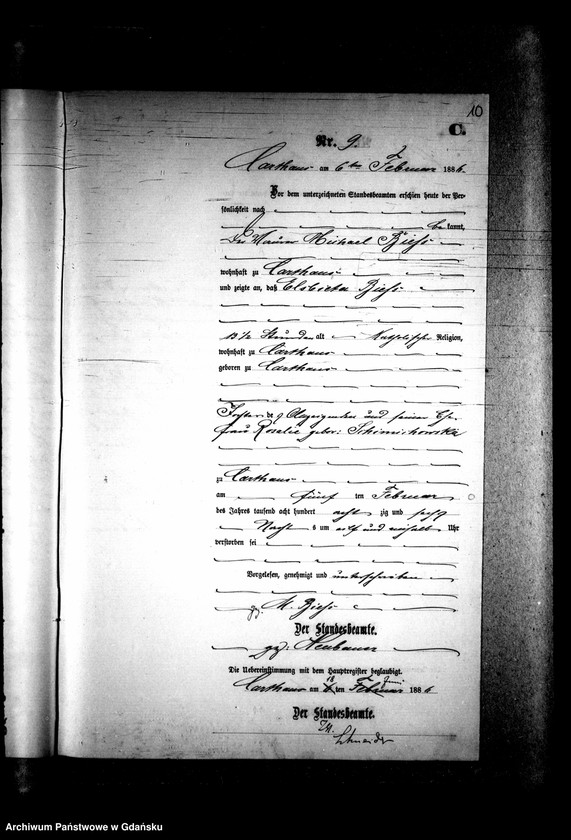 10
C.
Nr. 9.
Carthaus am 6ten Februar 1886.
Vor dem unterzeichneten Standesbeamten erschien heute, der Per-
sönlichkeit nach
be kannt,
Der Maurer Michael Biess
wohnhaft zu Carthaus
und zeigte an, daß Elsbieta Biess
13 1/2 Stunden alt Katholischer Religion,
wohnhaft zu Carthaus
geboren zu Carthaus
Tochter des Anzeigenden und seiner Ehe-
frau Rosalie gebor: Schimichowska
zu Carthaus
am fünf ten Februar
des Jahres tausend acht hundert acht zig und sechs
Nacht s um elf und einhalb Uhr
verstorben sei
Vorgelesen, genehmigt und unterschrieben
gz. M. Biess
Der Standesbeamte.
gz: Neubauer
Die Uebereinstimmung mit dem Hauptregister beglaubigt.
Carthaus am 18 ten Juni 1886
Der Standesbeamte.
Schneider
Archiwum Państwowe w Gdańsku